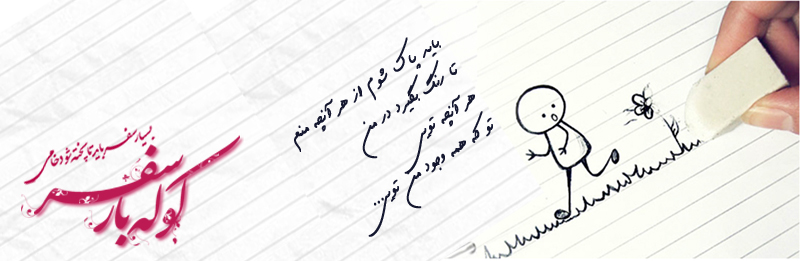 باید پاک شوم از هر آنچه منم
تا رنگ بگیرد در من
هر آنچه تویی
تو که همه وجود من تویی...
بسیار سفر باید تا پخته شود خامی
کوله بار سفر